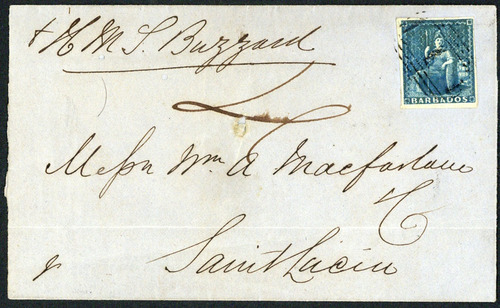 + H M S Buzzard
BARBADOS
Messrs Wm A Macfarlane
Saint Lucia